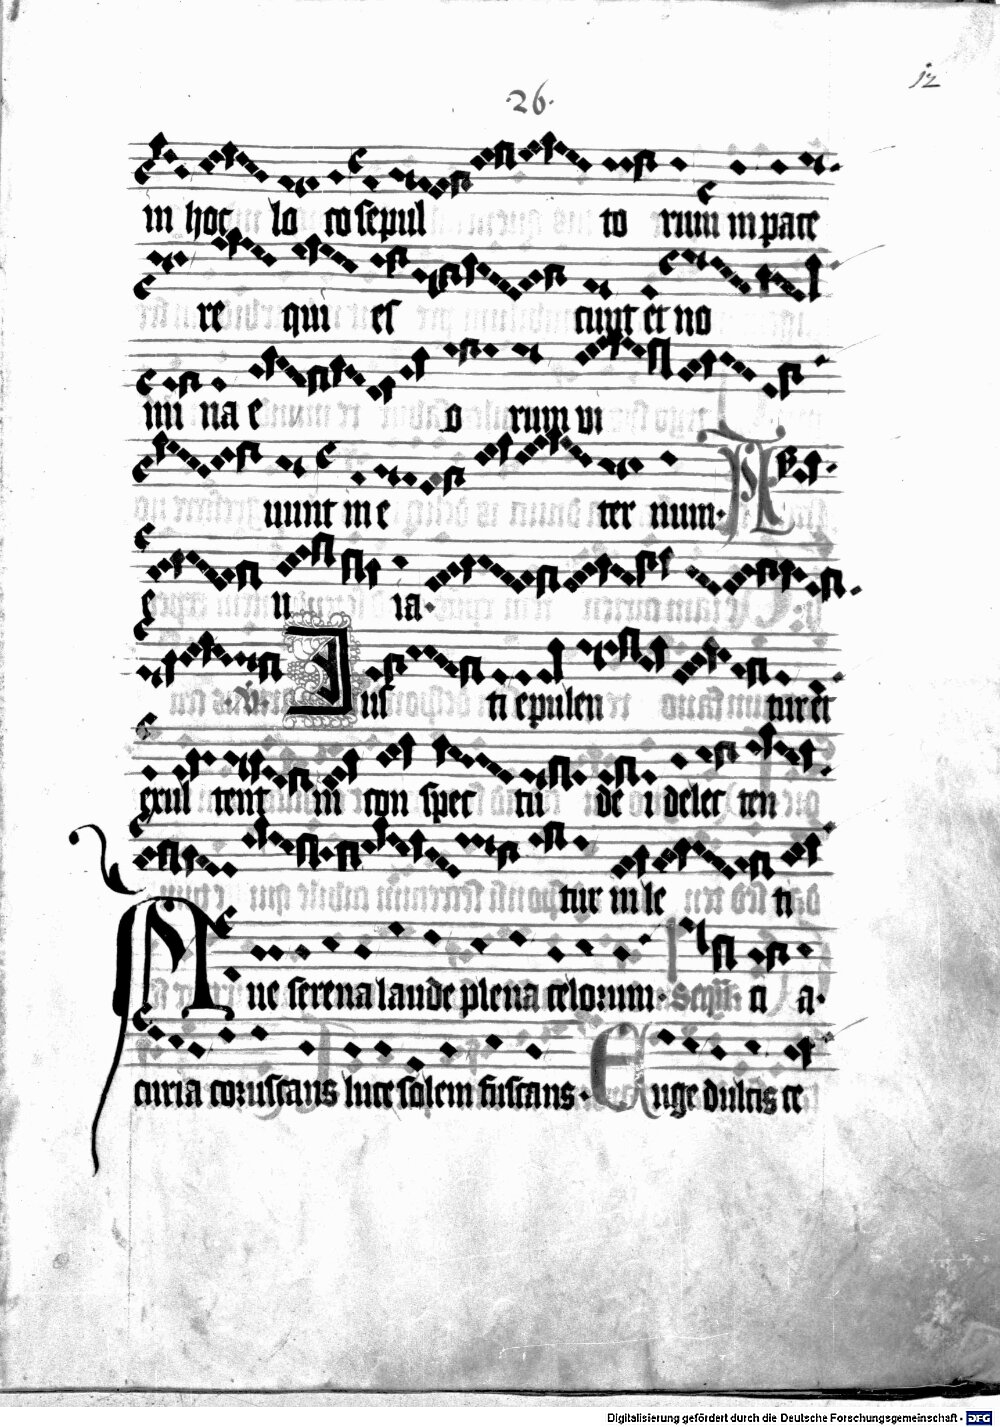 12
·26·
in hoc lo co sepul to rum in pace
re qui es cunt et no
mi na e o rum vi
uunt in e ter num· All
e u ia·
v. Jus ti epulen tur et
exul tent in con spec tu de i delec ten
tur in le ti
Ane serena laude plena celorum· Sequ. ci a·
curia coruscans luce solem fuscans· Euge dulcis ce
Digitalisierung gefördert durch die Deutsche Forschungsgemeinschaft - DFG